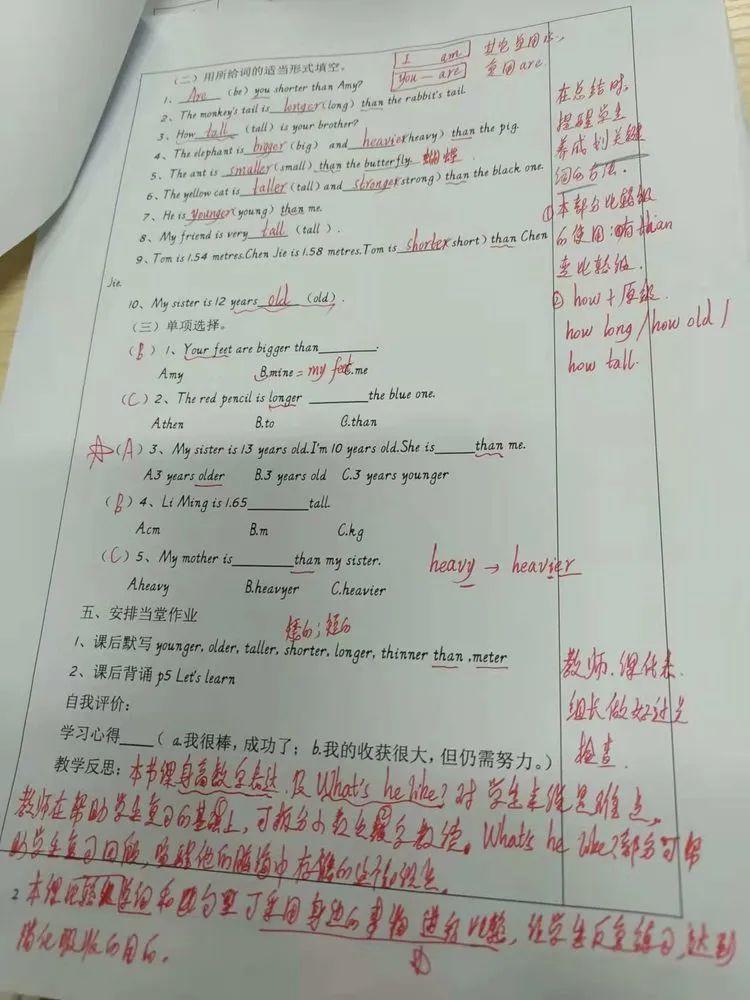 (二)用所给词的适当形式填空。
I am
you — are
复用are
1、 Are (be) you shorter than Amy?
2、The monkey's tail is longer(long) than the rabbit's tail.
3、How tall (tall) is your brother?
4、The elephant is bigger (big) and heavier(heavy) than the pig.
5、The ant is smaller(small) than the butterfly. 蝴蝶
6、The yellow cat is taller(tall) and stronger(strong) than the black one.
7、He is younger(young) than me.
8、My friend is very tall (tall ).
9、Tom is 1.54 metres.Chen Jie is 1.58 metres.Tom is shorter(short) than Chen
Jie.
10、My sister is 12 years old (old).
(三)单项选择。
(B) 1、Your feet are bigger than________.
A.my B.mine = my feet C.me
(C) 2、The red pencil is longer ________the blue one.
A.then B.to C.than
☆(A) 3、My sister is 13 years old.I'm 10 years old.She is______than me.
A.3 years older B.3 years old C.3 years younger
(B) 4、Li Ming is 1.65________tall.
A.cm B.m C.kg
(C) 5、My mother is________than my sister.
heavy → heavier
A.heavy B.heavyer C.heavier
五、安排当堂作业
矮的;短的
1、课后默写 younger, older, taller, shorter, longer, thinner than ,meter
2、课后背诵 p5 Let's learn
自我评价:
学习心得____( a.我很棒,成功了; b.我的收获很大,但仍需努力。)
教学反思:本节课身高数字表达,及What's he like?对学生来说是难点。
教师在帮助学生复习的基础上,可拆分小数点 数字教读。What's he like?部分可帮
助学生复习回顾,
2 本课比较级单词和句型可采用身边的事物进行比较,让学生反复练习,达到
消化吸收的目的。
在总结时,
提醒学生
养成划关键
词的方法。
①本部分比较级
的使用:有than
变比较级.
② how + 原级.
how long / how old /
how tall.
教师、课代表、
组长做好过关
检查.